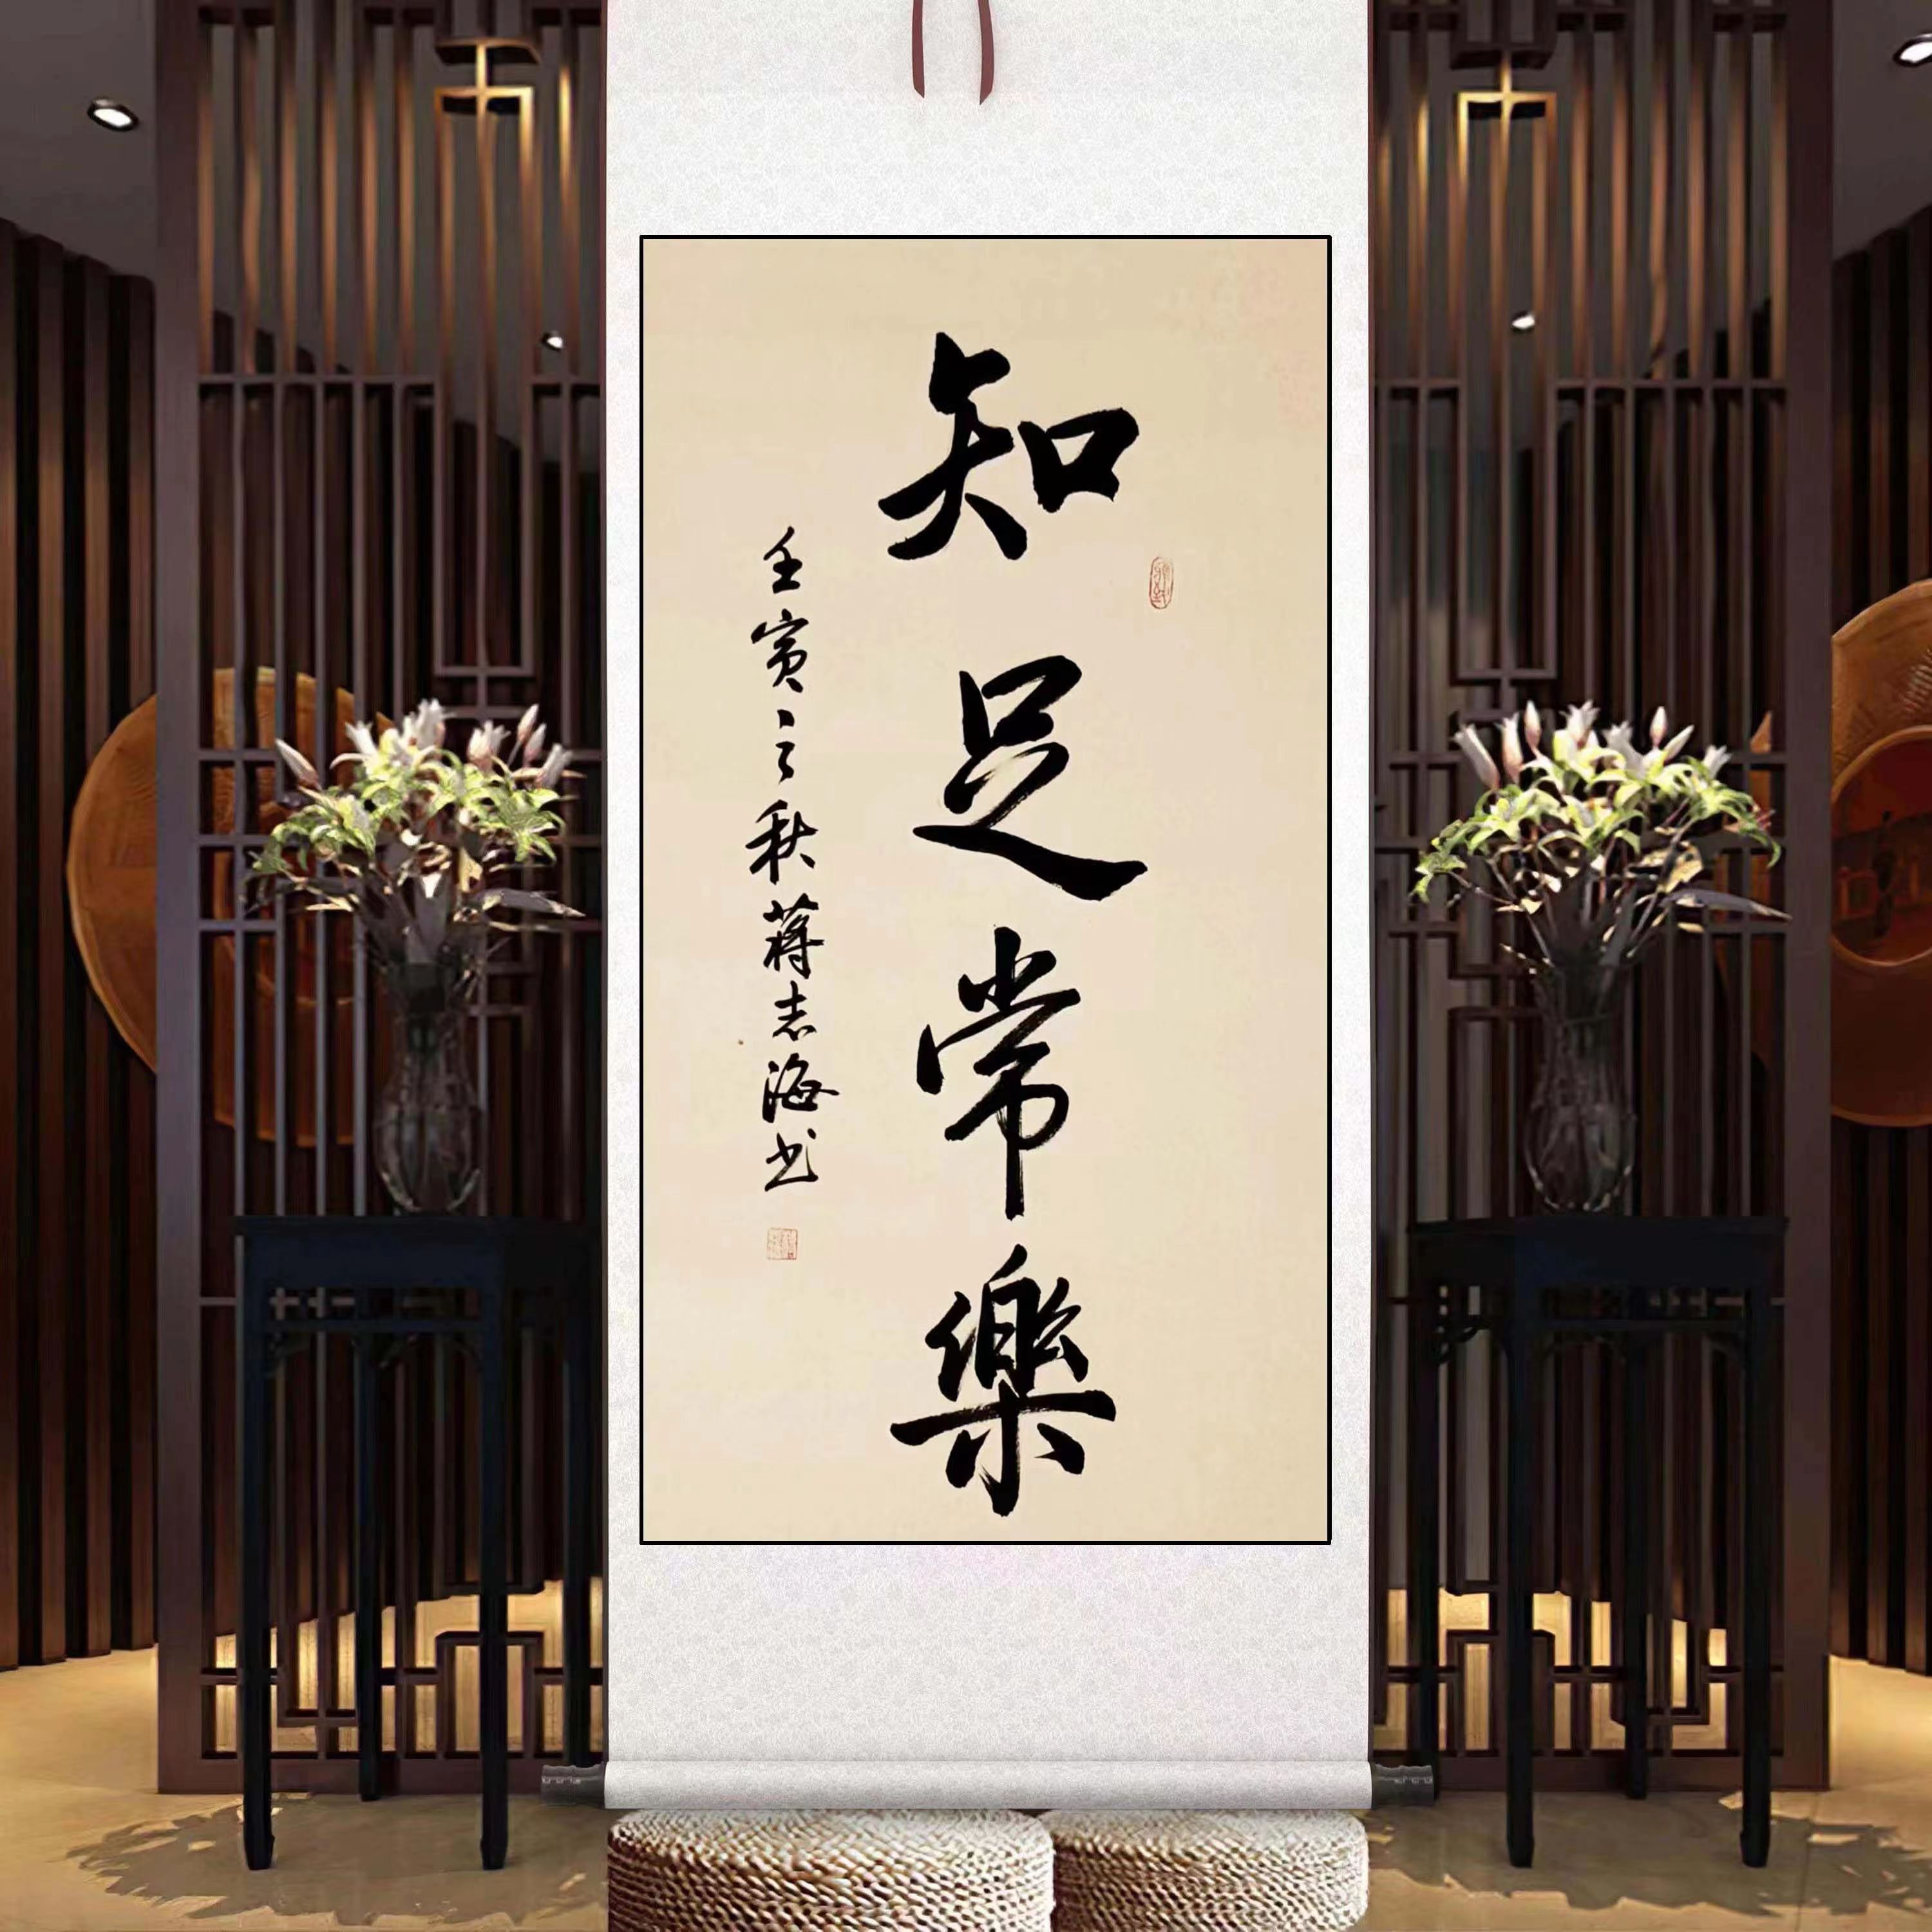 知足常樂
壬寅之秋蒋志海书